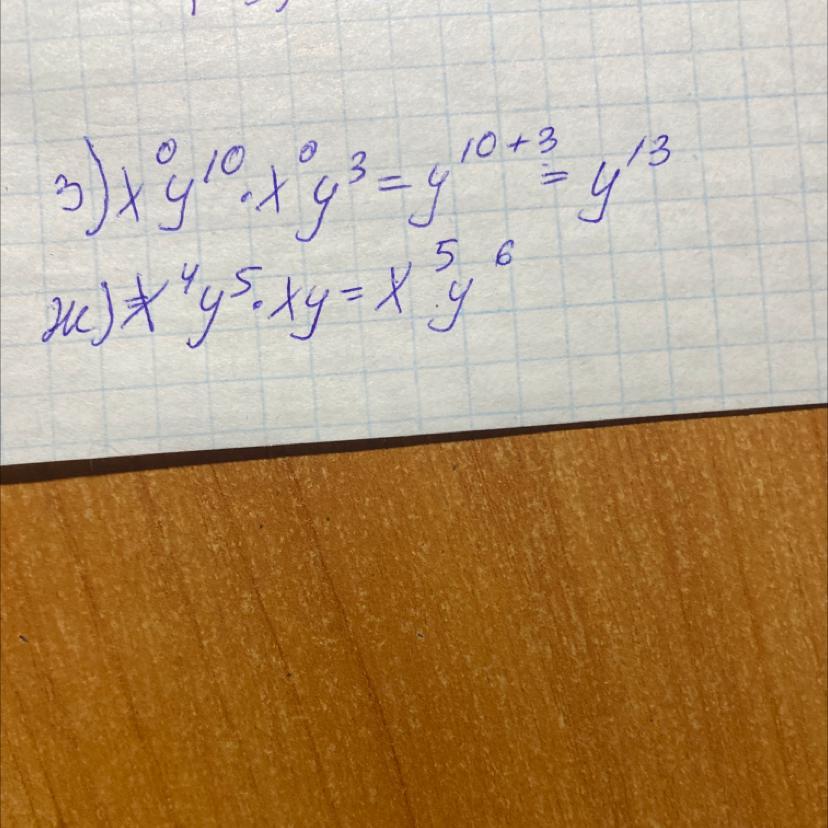 з) x⁰y¹⁰·x⁰y³ = y¹⁰⁺³ = y¹³
ж) x⁴y⁵·xy = x⁵y⁶